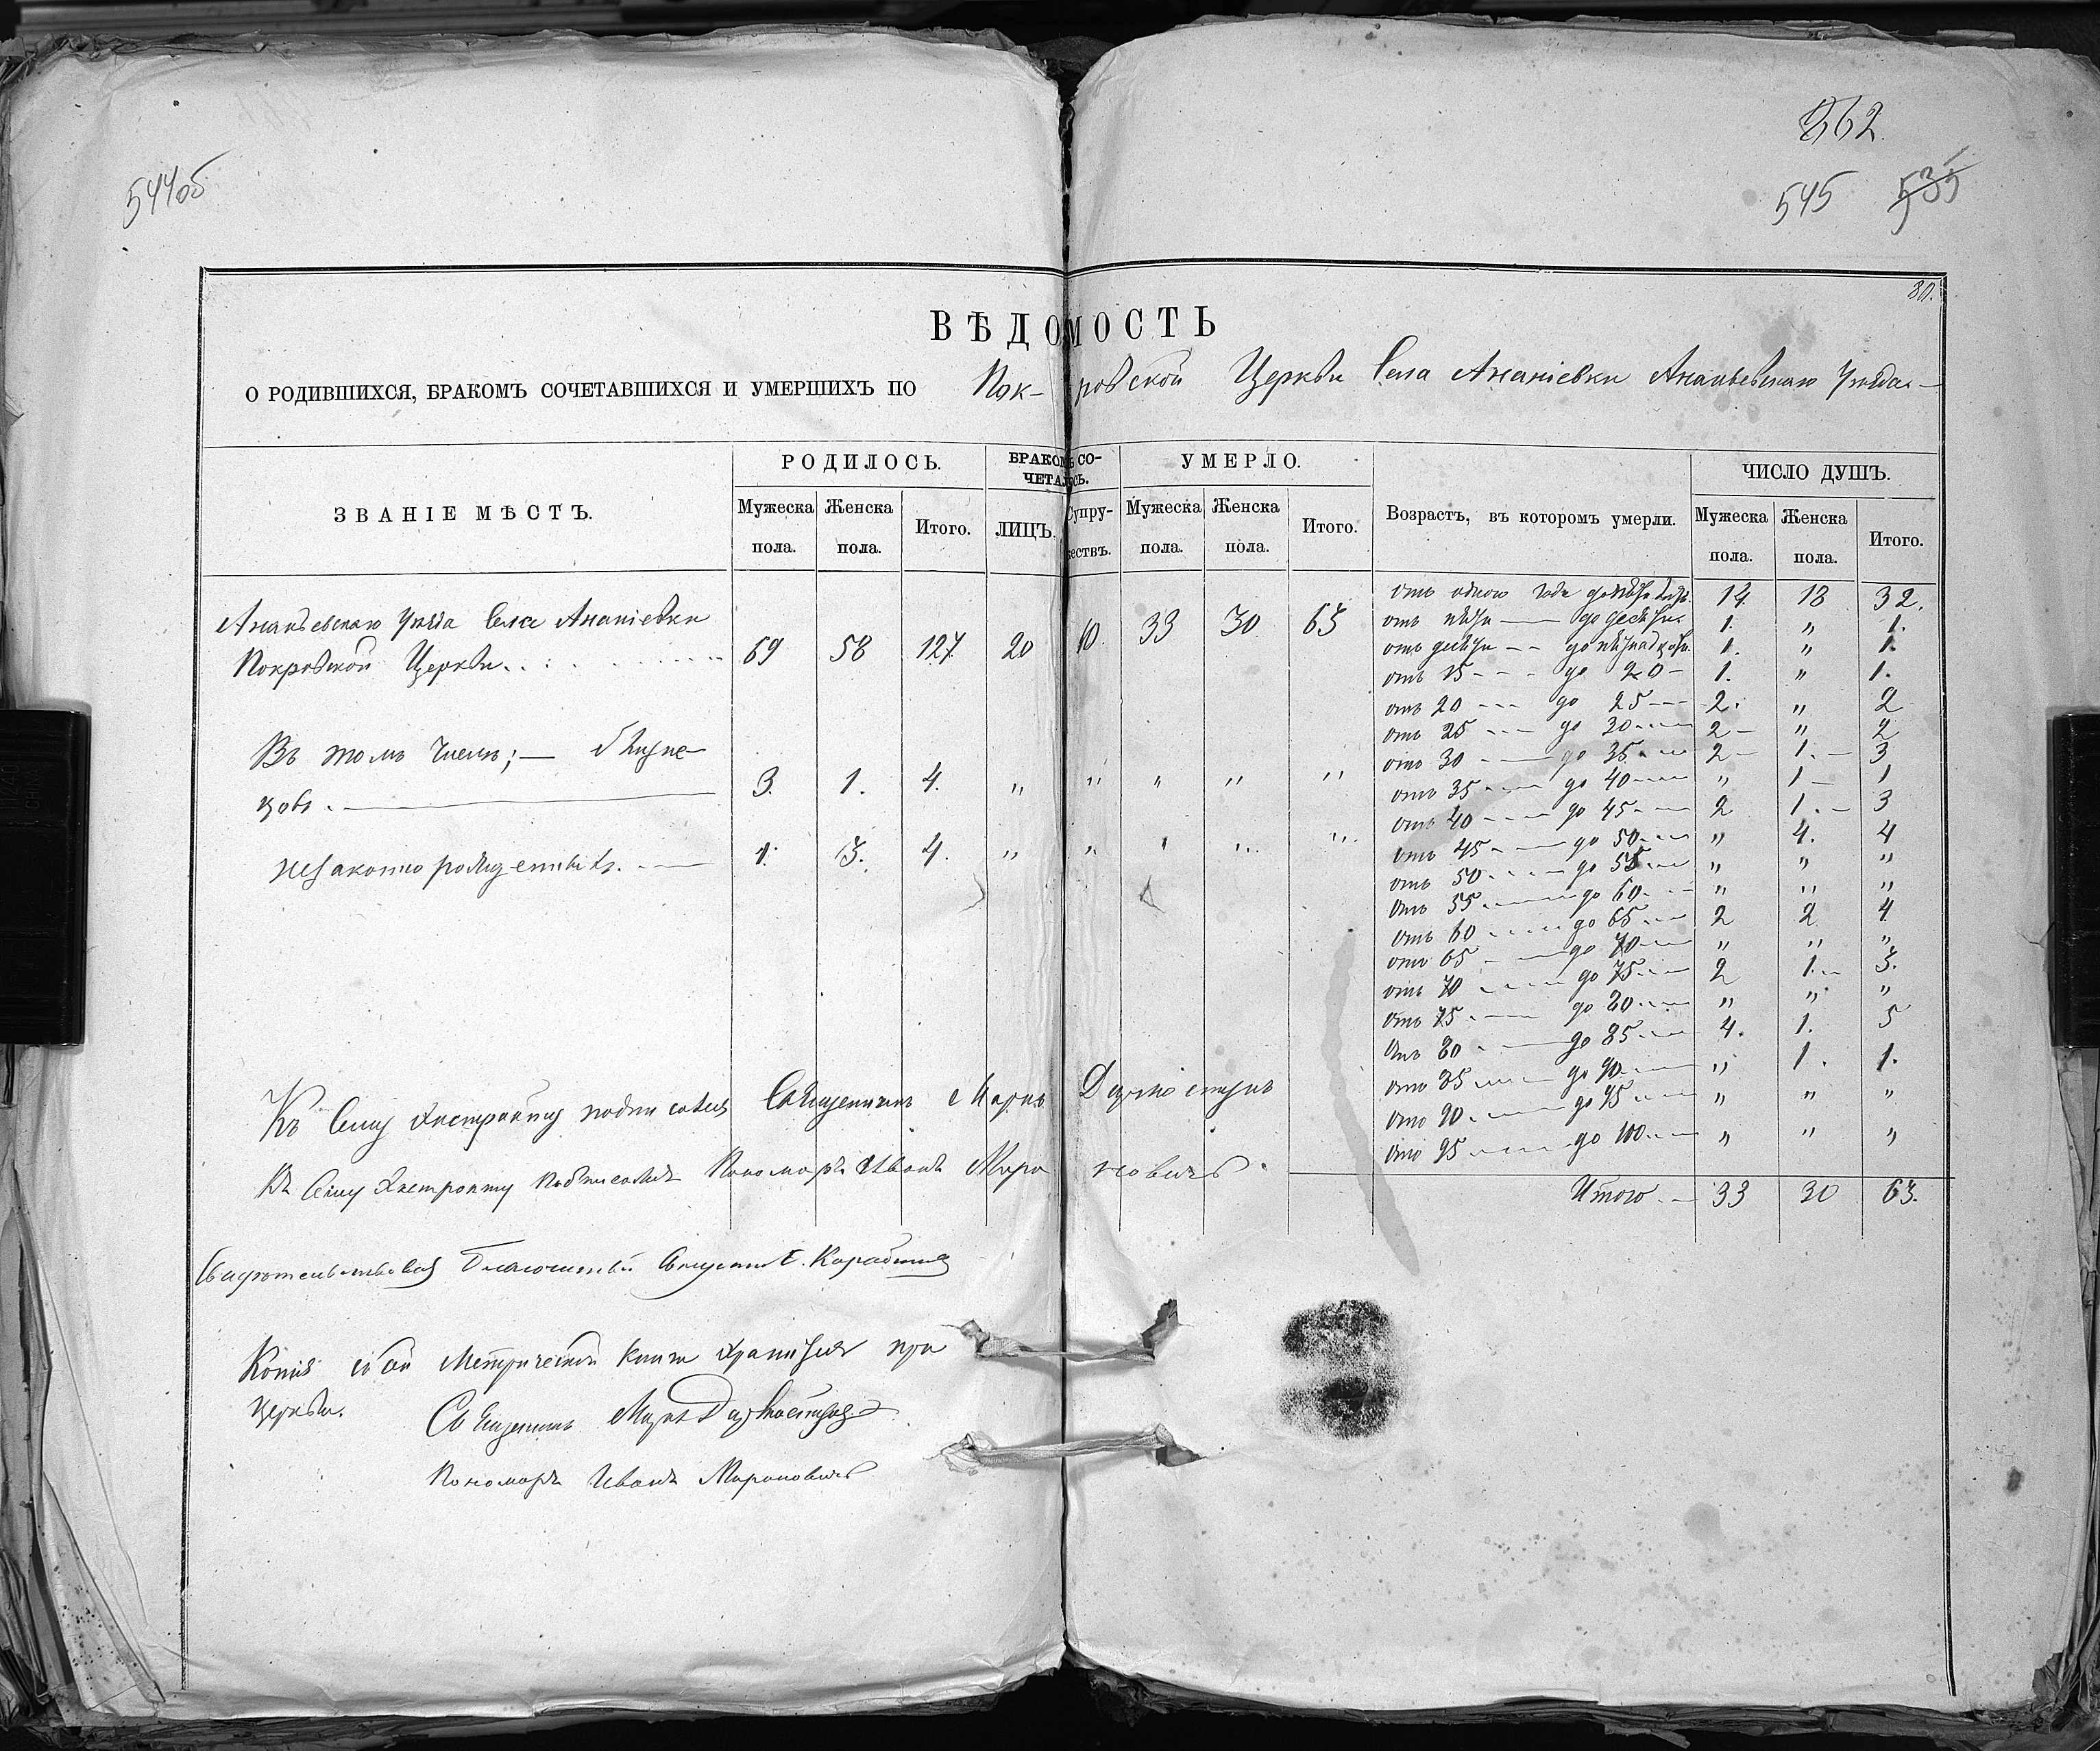 544об
362.
545 535
30.
ВѢДОМОСТЬ
О РОДИВШИХСЯ, БРАКОМЪ СОЧЕТАВШИХСЯ И УМЕРШИХЪ ПО Пок-ровской Церкви Села Ананіевки Ананьевскаго Уѣзда
ЗВАНІЕ МѢСТЪ. РОДИЛОСЬ. БРАКОМЪ СОЧЕТАЛОСЬ. УМЕРЛО. Возрастъ, въ которомъ умерли. ЧИСЛО ДУШЪ.
Мужеска пола. Женска пола. Итого. ЛИЦЪ. Супружествъ. Мужеска пола. Женска пола. Итого. Мужеска пола. Женска пола. Итого.
Ананьевскаго Уѣзда Села Ананіевки
Покровской Церкви 69 58 127 20 10. 33 30 63
Въ томъ числѣ; — близне-
цовъ. 3. 1. 4. „ „ „ „ „
незаконнорожденныхъ. 1. 3. 4. „ „ „ „ „
отъ одного года до пяти лѣтъ. 14. 18 32.
отъ пяти — до десяти. 1. „ 1.
отъ десяти — до пятнадцати. 1. „ 1.
отъ 15 - - - до 20 - 1. „ 1.
отъ 20 --- до 25 --- 2. „ 2
отъ 25 --- до 30 --- 2 - „ 2
отъ 30 --- до 35 --- 2 - 1. - 3
отъ 35 --- до 40 --- „ 1 - 1
отъ 40 --- до 45 --- 2 1. - 3
отъ 45 --- до 50 --- „ 4. 4
отъ 50 --- до 55 --- „ „ „
отъ 55 --- до 60 --- „ „ „
отъ 60 --- до 65 --- 2 2 4
отъ 65 --- до 70 --- „ „ „
отъ 70 --- до 75 --- 2 1. 3.
отъ 75 --- до 80 --- „ „ „
отъ 80 --- до 85 --- 4. 1. 5
отъ 85 --- до 90 --- „ 1. 1.
отъ 90 --- до 95 --- „ „ „
отъ 95 --- до 100 --- „ „ „
Итого. — 33 30 63.
Къ сему Экстракту подписался Священникъ Маркъ
Къ сему Экстракту подписался Пономарь Иванъ Мироновичъ.
Свидѣтельствовалъ Благочинный Священникъ
Копія съ сей Метрической книги хранится при
церкви.
Священникъ Маркъ
Пономарь Иванъ Мироновичъ